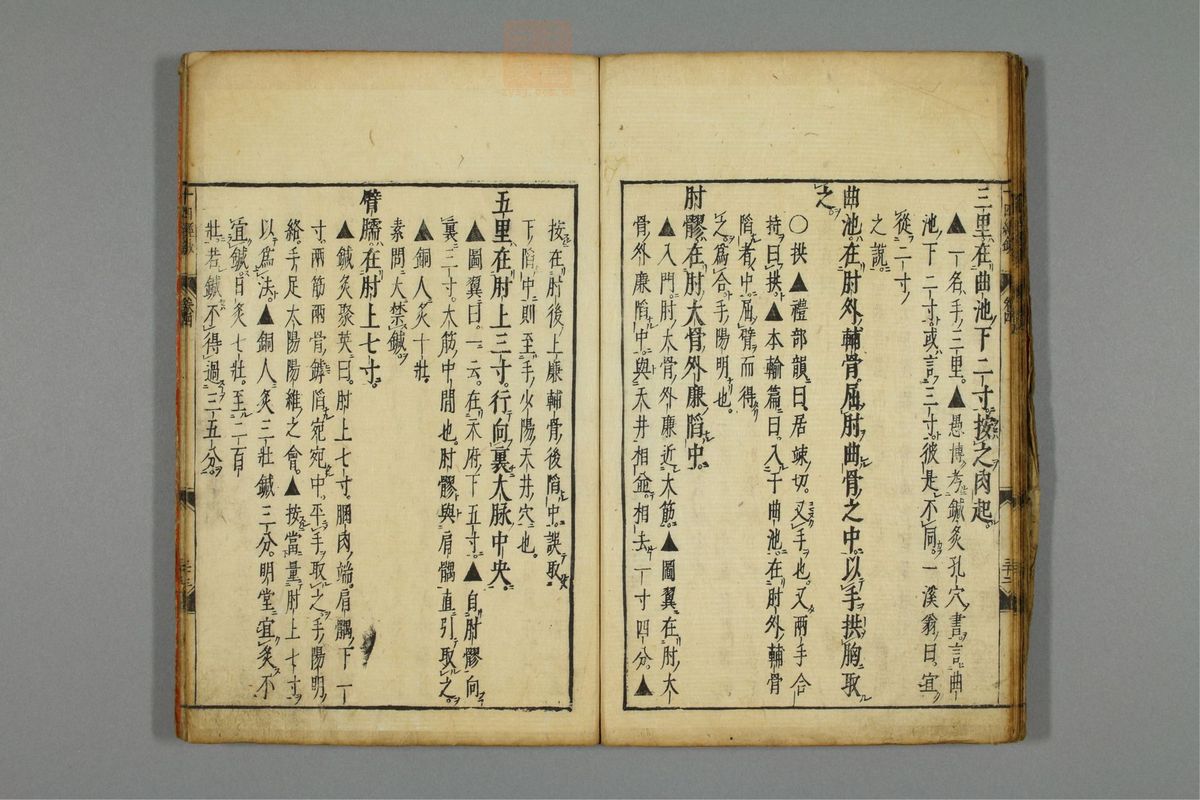 三里在曲池下二寸按之肉起
▲一名手三里▲愚博考鍼灸孔穴書言曲
池下二寸或言三寸彼是不同一溪翁曰宜
從二寸
之說
曲池在肘外輔骨屈肘曲骨之中以手拱胸取
之
○拱▲禮部韻曰居竦切叉手也又兩手合
持曰拱▲本輸篇曰入于曲池在肘外輔骨
陷者中屈臂而得
之爲合手陽明也
肘髎在肘大骨外廉陷中
▲入門肘大骨外廉近大筋▲圖翼在肘大
骨外廉陷中與天井相並相去一寸四分▲
按在肘後上廉輔骨後陷中誤取
下陷中則至手少陽天井穴也
五里在肘上三寸行向裏大脉中央
▲圖翼曰一云在天府下五寸▲自肘髎向
裏三寸大筋中間也肘髎與肩髃直引取之
▲銅人灸十壯
素問大禁鍼
臂臑在肘上七寸
▲鍼灸聚英曰肘上七寸䐃肉端肩髃下一
寸兩筋兩骨罅陷宛宛中平手取之手陽明
絡手足太陽陽維之會▲按當量肘上七寸
以爲法▲銅人灸三壯鍼三分明堂宜灸不
宜鍼日灸七壯至二百
壯若鍼不得過三五分